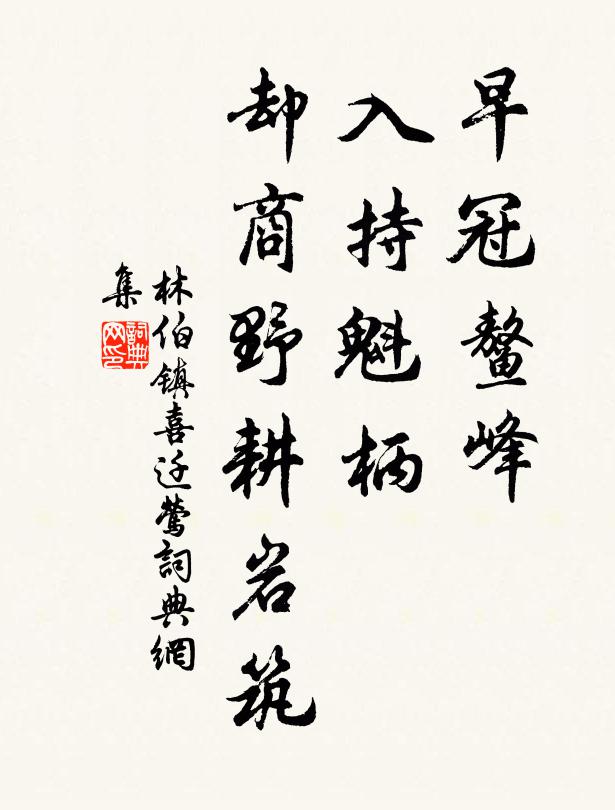 早冠鳌峰
入持魁柄
却商野耕岩筑
林伯镇喜迁莺詞典網
集
詞典网印